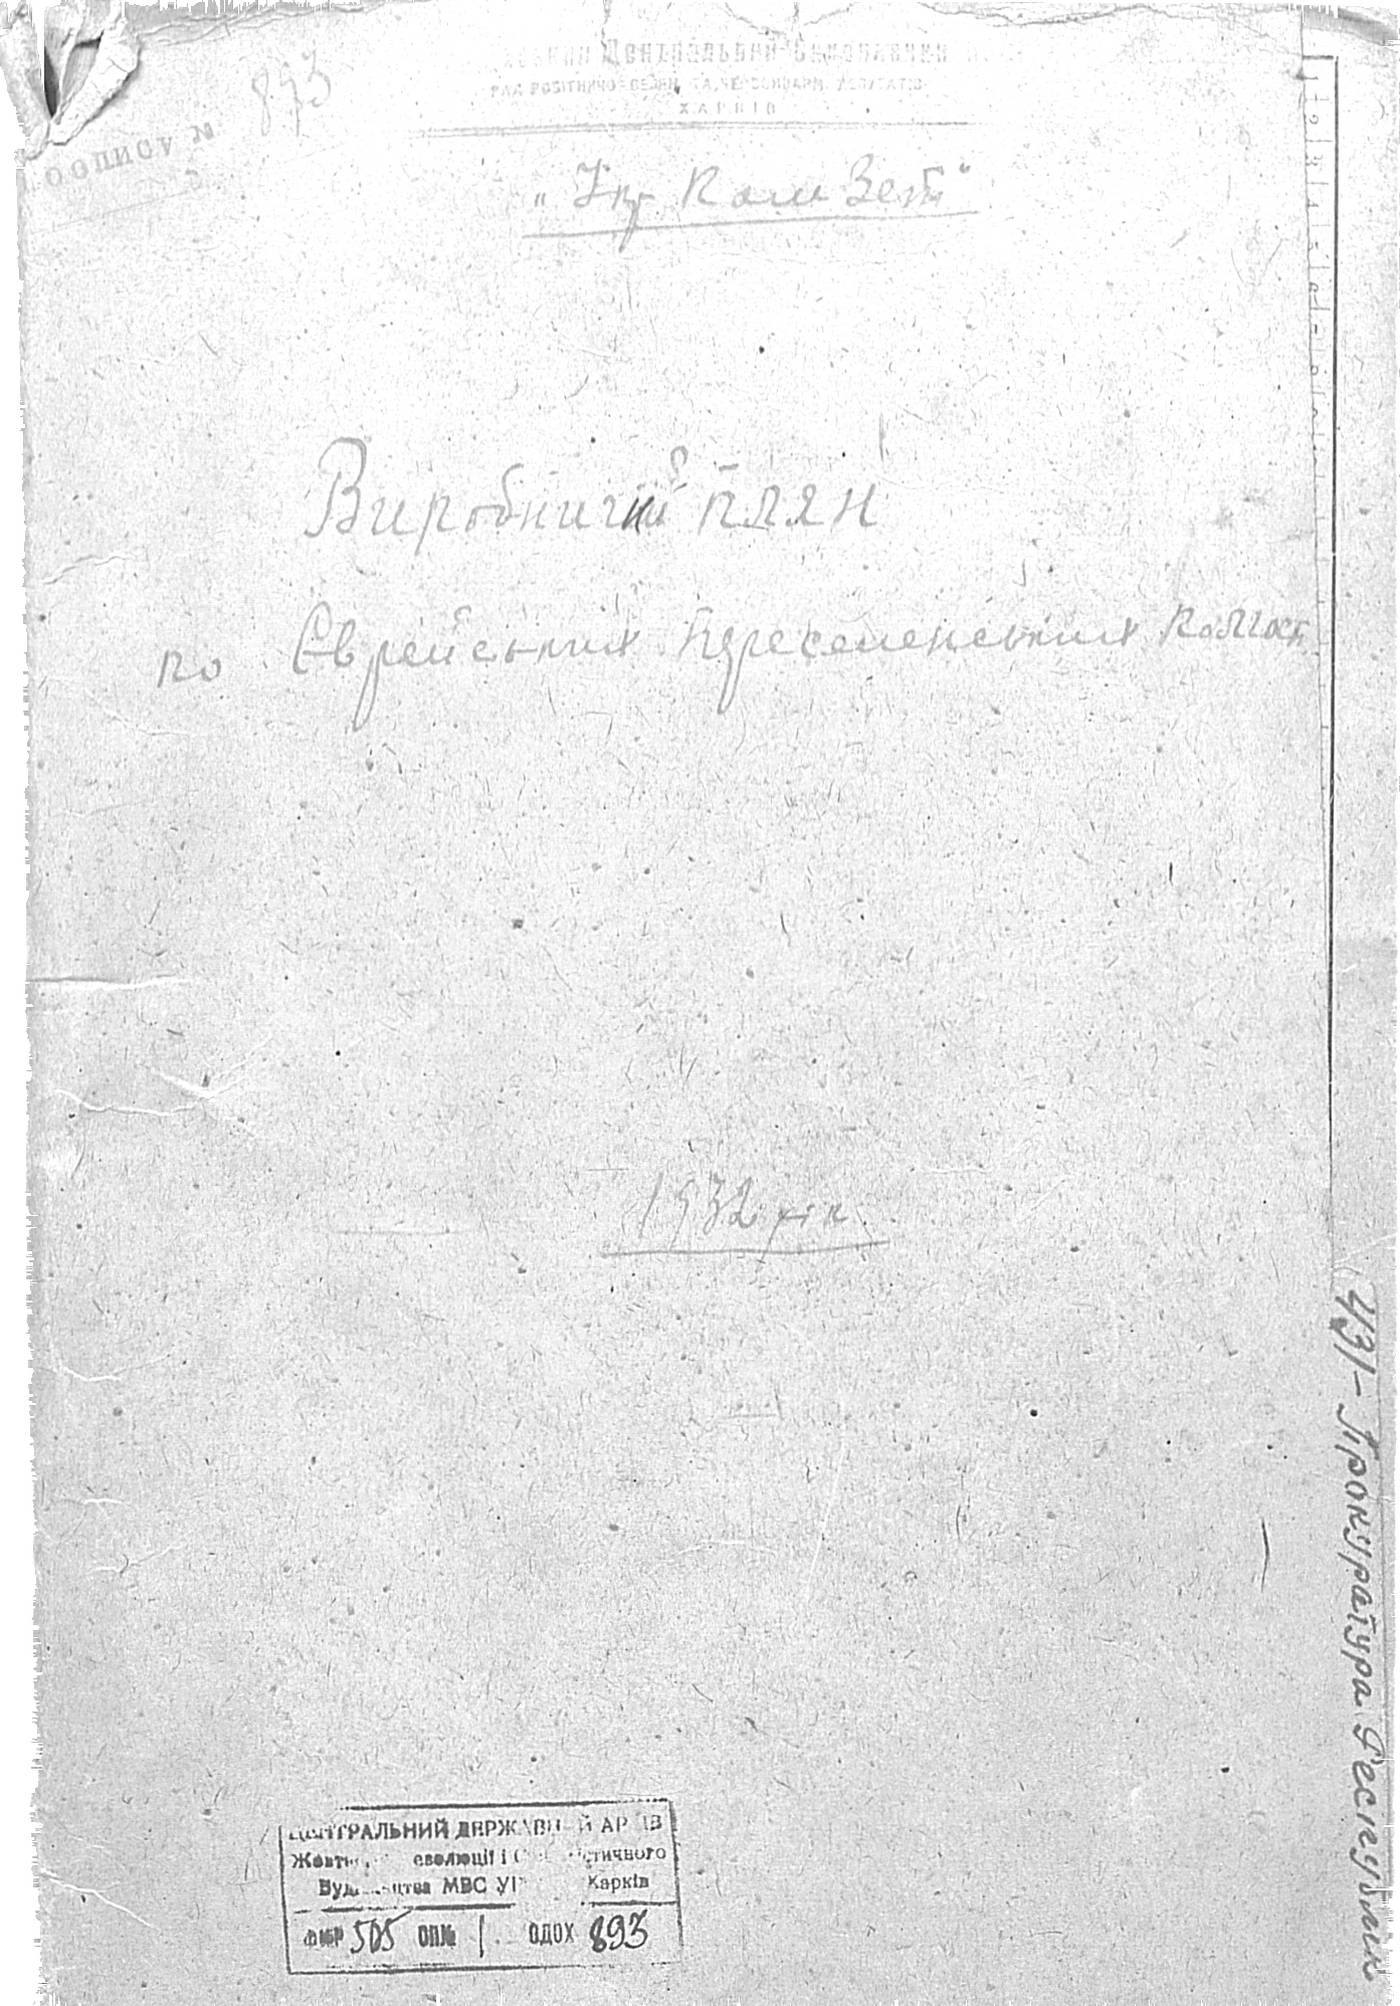 893
ПО ОПИСУ №
РАД РОБІТНИЧО-СЕЛЯН. ТА ЧЕРВОНОАРМ. ДЕПУТАТІВ
ХАРКІВ
„Укр Ком Зет"
Виробничий плян
по Єврейських переселенських колгосп.
1932 рік
431 – Прокуратура Республіки
ЦЕНТРАЛЬНИЙ ДЕРЖАВНИЙ АРХІВ
Жовтн. еволюції і Соц стичного
Буд цтва МВС УР Харків
ФОНД 505 ОП.№ 1 ОДОХ 893